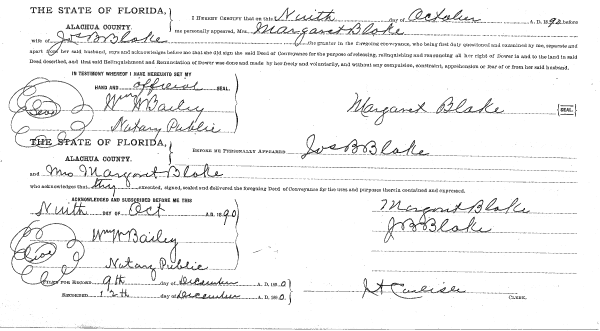 THE STATE OF FLORIDA,
ALACHUA COUNTY.
I HEREBY CERTIFY that on this Ninth day of October A. D. 1890 before
me personally appeared, Mrs. Margaret Blake
wife of Jos B Blake the grantor in the foregoing conveyance, who being first duly questioned and examined by me, separate and
apart from her said husband, says and acknowledges before me that she did sign the said Deed or Conveyance for the purpose of releasing, relinquishing and renouncing all her right of Dower in and to the land in said
Deed described, and that said Relinquishment and Renunciation of Dower was done and made by her freely and voluntarily, and without any compulsion, constraint, apprehension or fear of or from her said husband.
IN TESTIMONY WHEREOF I HAVE HEREUNTO SET MY
HAND AND official SEAL.
Wm W Bailey
Seal
Notary Public
Margaret Blake
SEAL
THE STATE OF FLORIDA,
ALACHUA COUNTY.
BEFORE ME PERSONALLY APPEARED Jos B Blake
and Mrs Margaret Blake
who acknowledges that they executed, signed, sealed and delivered the foregoing Deed of Conveyance for the uses and purposes therein contained and expressed.
ACKNOWLEDGED AND SUBSCRIBED BEFORE ME THIS
Ninth DAY OF Oct A.D. 1890
Wm W Bailey
Seal
Notary Public
Margaret Blake
J B Blake
FILED FOR RECORD 9th day of December A. D. 1890
RECORDED 12th day of December A. D. 1890
J H Carlisle CLERK.